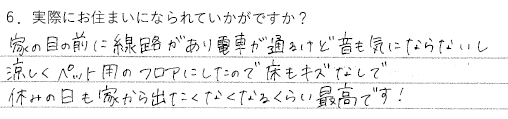 6．実際にお住まいになられていかがですか？
家の目の前に線路があり電車が通るけど音も気にならないし
涼しくペット用のフロアにしたので床もキズなしで
休みの日も家から出たくなくなるくらい最高です！